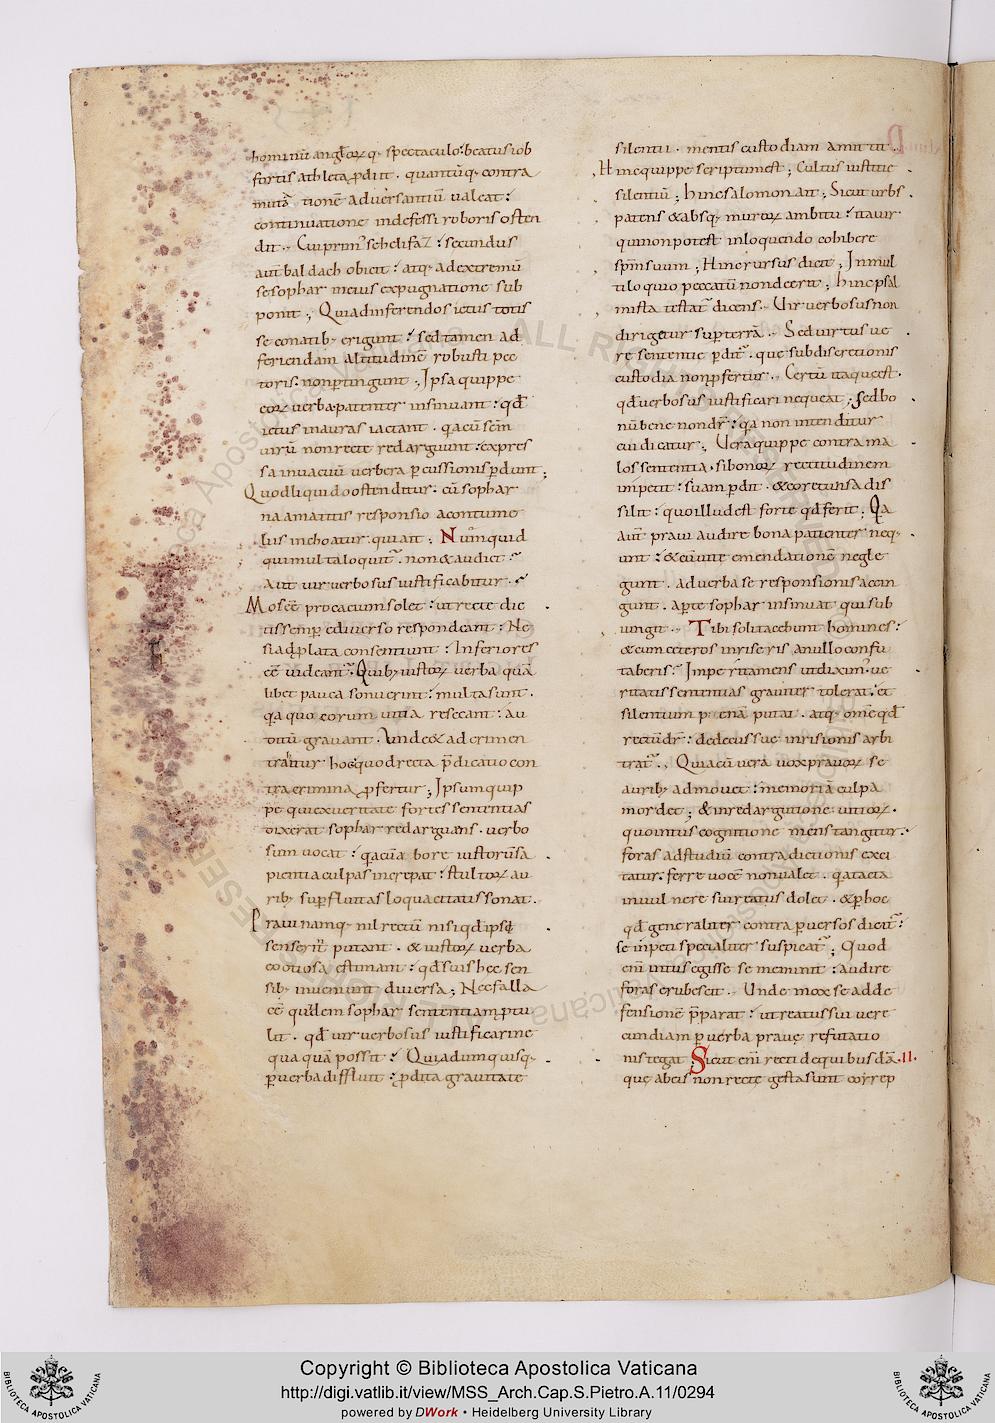 hominũ anglorꝝ q; spectaculo: beatus iob
fortis athleta ꝓdiit . quantũq; contra
mutã tionẽ adversantiũ ualeat:
continuatione indefessi roboris osten
dit . Cui primũ se helifaz: secundus
aut̃ baldach obicit: atq; ad extremũ
se sophar in eius expugnatione sub
ponit ; Qui ad inferendos ictus totis
se conatib; erigunt: sed tamen ad
feriendam altitudinẽ robusti pec
toris . non ꝑtingunt ; Ipsa quippe
eorꝝ uerba patenter insinuant: qđ
ictus in auras iactant . qa cũ scm̃
uirũ non recte redarguunt: expres
sa in uacuũ uerbera ꝑcussionis ꝑdunt ;
Quod liquido ostenditur . cũ sophar
naamatitis responsio a contume
liis inchoatur . qui ait ; Numquid
qui multa loquit̃ . non & audiet ?
Aut uir uerbosus iustificabitur . ?
Mos eẽ procacium solet: ut recte dic
tis semꝑ e diuerso respondeant: Ne
si ad ꝓlata consentiunt: inferiores
eẽ uideant̃ . Quib; iustorꝝ uerba quã
libet pauca sonuerint: multa sunt .
qa quo eorum uitia resecant: au
ditũ grauant . Unde & ad crimen
trahitur hoc quod recta p̃dicatio con
tra crimina ꝓfertur ; Ipsum quip
pe qui ex ueritate fortes sententias
dixerat sophar redarguens . uerbo
sum uocat: qa cũ ab ore iustorũ sa
pientia culpas increpat: stultorꝝ au
rib; suꝑfluitas loquacitatis sonat .
Praui namq; nil rectũ nisi qđ ipsi
senserint̃ putant . & iustorꝝ uerba
eo otiosa estimant: qđ suis hec sen
sib; inueniunt diuersa ; Nec falla
cẽ quidem sophar sententiam ꝓtu
lit . qđ uir uerbosus iustificari ne
quaquã possit: Quia dum quisq;
ꝑ uerba diffluit: ꝑdita grauitate
silentii . mentis custodiam amittit .
Hinc quippe scriptum est ; Cultus iustitie
silentiũ ; hinc salomon ait ; Sicut urbs
patens & absq; murorꝝ ambitu: ita uir
qui non potest in loquendo cohibere
spm̃ suum ; Hinc rursus dicit ; In mul
tiloquio peccatũ non deerit ; hinc psal
mista testat̃ dicens . Uir uerbosus non
dirigetur suꝑ terrã . Sed uirtus ue
re sententie ꝑdit̃ . que sub discretionis
custodia non ꝓfertur . Certũ itaque est .
qđ uerbosus iustificari nequeat ; sed bo
nũ bene non dr̃: qa non intenditur
cui dicatur ; Uera quippe contra ma
los sententia . si bonorꝝ rectitudinem
impetit: suam ꝑdit . & eo retunsa dis
silit: quo illud est forte qđ ferit ; Qa
aut̃ praui audire bona patienter neq;
unt: & eũ uite emendationẽ negle
gunt . ad uerba se responsionis accin
gunt . aꝑte sophar insinuat qui sub
iungit . Tibi soli tacebunt homines:
& cum ceteros inriseris a nullo confu
taberis ? Imperita mens ut diximꝰ ue
ritatis sententias grauiter tolerat . et
silentium penã putat . atq; omẽ qđ
rectũ dr̃: dedecus sue inrisionis arbi
trat̃ . Quia cũ uera uox prauorꝝ se
aurib; admouet: memoriã culpa
mordet ; & in redargutione uitiorꝝ .
quo intus cognitione mens tangitur .
foras ad studiũ contradictionis exci
tatur . ferre uocẽ non ualet . qa tacta
in uulnere sui reatus dolet . & ꝑ hoc
qđ generaliter contra ꝑuersos dicit̃:
se impeti specialiter suspicat̃ ; Quod
eñi intus egisse se meminit: audire
foras erubescit . Unde mox se ad de
fensionẽ p̃parat: ut reatus sui uere
cundiam ꝑ uerba prauę refutatio
nis tegat ; Sicut eñi recti de quibusdã .II.
quę ab eis non recte gesta sunt correp
Copyright © Biblioteca Apostolica Vaticana
http://digi.vatlib.it/view/MSS_Arch.Cap.S.Pietro.A.11/0294
powered by DWork • Heidelberg University Library
BIBLIOTECA APOSTOLICA VATICANA
BIBLIOTECA APOSTOLICA VATICANA